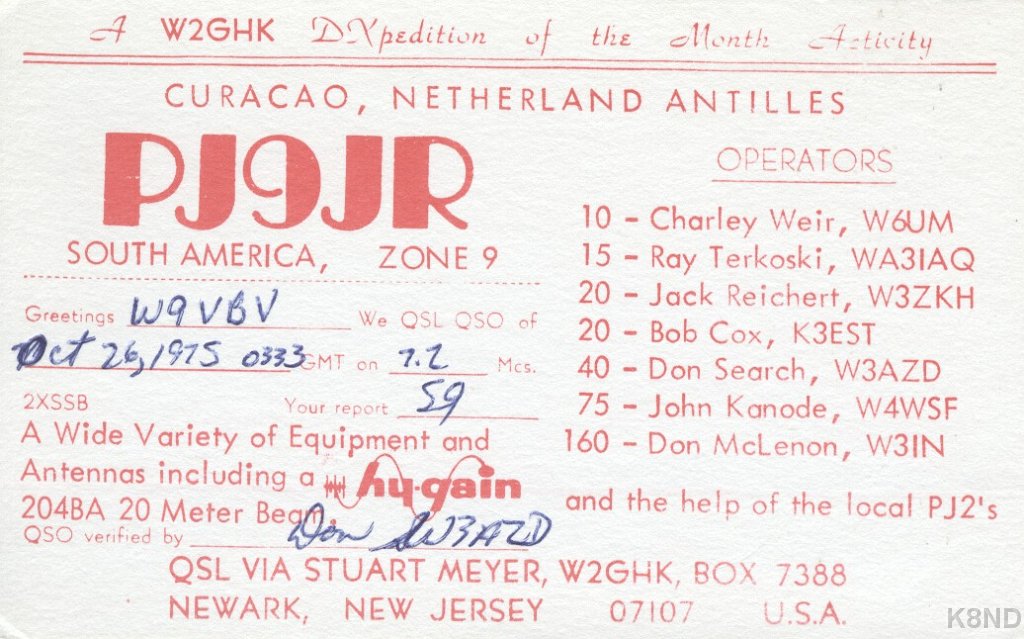 A W2GHK DXpedition of the Month Activity
CURACAO, NETHERLAND ANTILLES
PJ9JR
SOUTH AMERICA, ZONE 9
Greetings W9VBV We QSL QSO of
Oct 26, 1975 0333 GMT on 7.2 Mcs.
2XSSB Your report 59
A Wide Variety of Equipment and
Antennas including a hy-gain
204BA 20 Meter Beam.
QSO verified by Don W3AZD
OPERATORS
10 - Charley Weir, W6UM
15 - Ray Terkoski, WA3IAQ
20 - Jack Reichert, W3ZKH
20 - Bob Cox, K3EST
40 - Don Search, W3AZD
75 - John Kanode, W4WSF
160 - Don McLenon, W3IN
and the help of the local PJ2's
QSL VIA STUART MEYER, W2GHK, BOX 7388
NEWARK, NEW JERSEY 07107 U.S.A.
K8ND